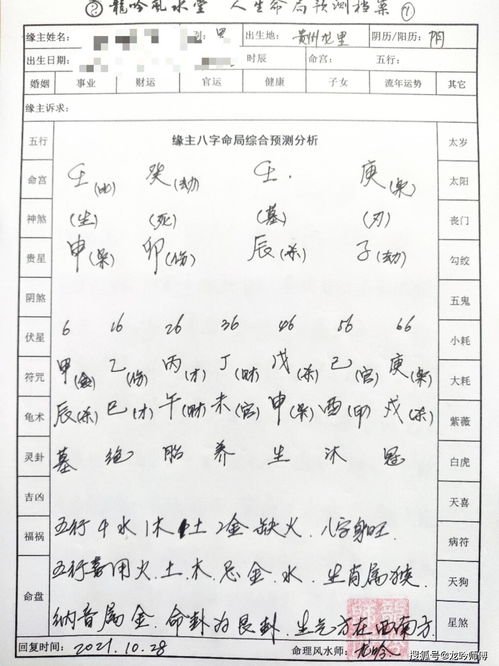 ② 龍吟風水堂 人生命局预测档案 ①
缘主姓名: 性别: 男 出生地: 贵州龙里 阴历/阳历: 阴
出生日期: 时辰 命宫: 五行:
婚姻 事业 财运 官运 健康 子女 流年运势 其它
缘主诉求:
五行 缘主八字命局综合预测分析 太岁
命宫 壬(比) 癸(劫) 壬. 庚(枭) 太阳
神煞 (生) (死) (墓) (刃) 丧门
贵星 申(枭) 卯(伤) 辰(杀) 子(劫) 勾绞
阴煞 五鬼
伏星 6 16 26 36 46 56 66 小耗
符咒 甲(食) 乙(伤) 丙(才) 丁(财) 戊(杀) 己(官) 庚(枭) 大耗
龟术 辰(杀) 巳(才) 午(财) 未(官) 申(枭) 酉 戌(杀) 紫薇
灵卦 墓 绝 胎 养 生 沐 冠 白虎
吉凶 天喜
福祸 五行4水1木1土2金缺火.八字身旺. 病符
五行喜用火.土.木忌金.水.生肖属猴. 天狗
命盘 纳音属金.命卦为艮卦.生气方在西南方. 星煞
回复时间: 2021.10.28 命理风水师: 龙吟
搜狐号@龙吟师傅